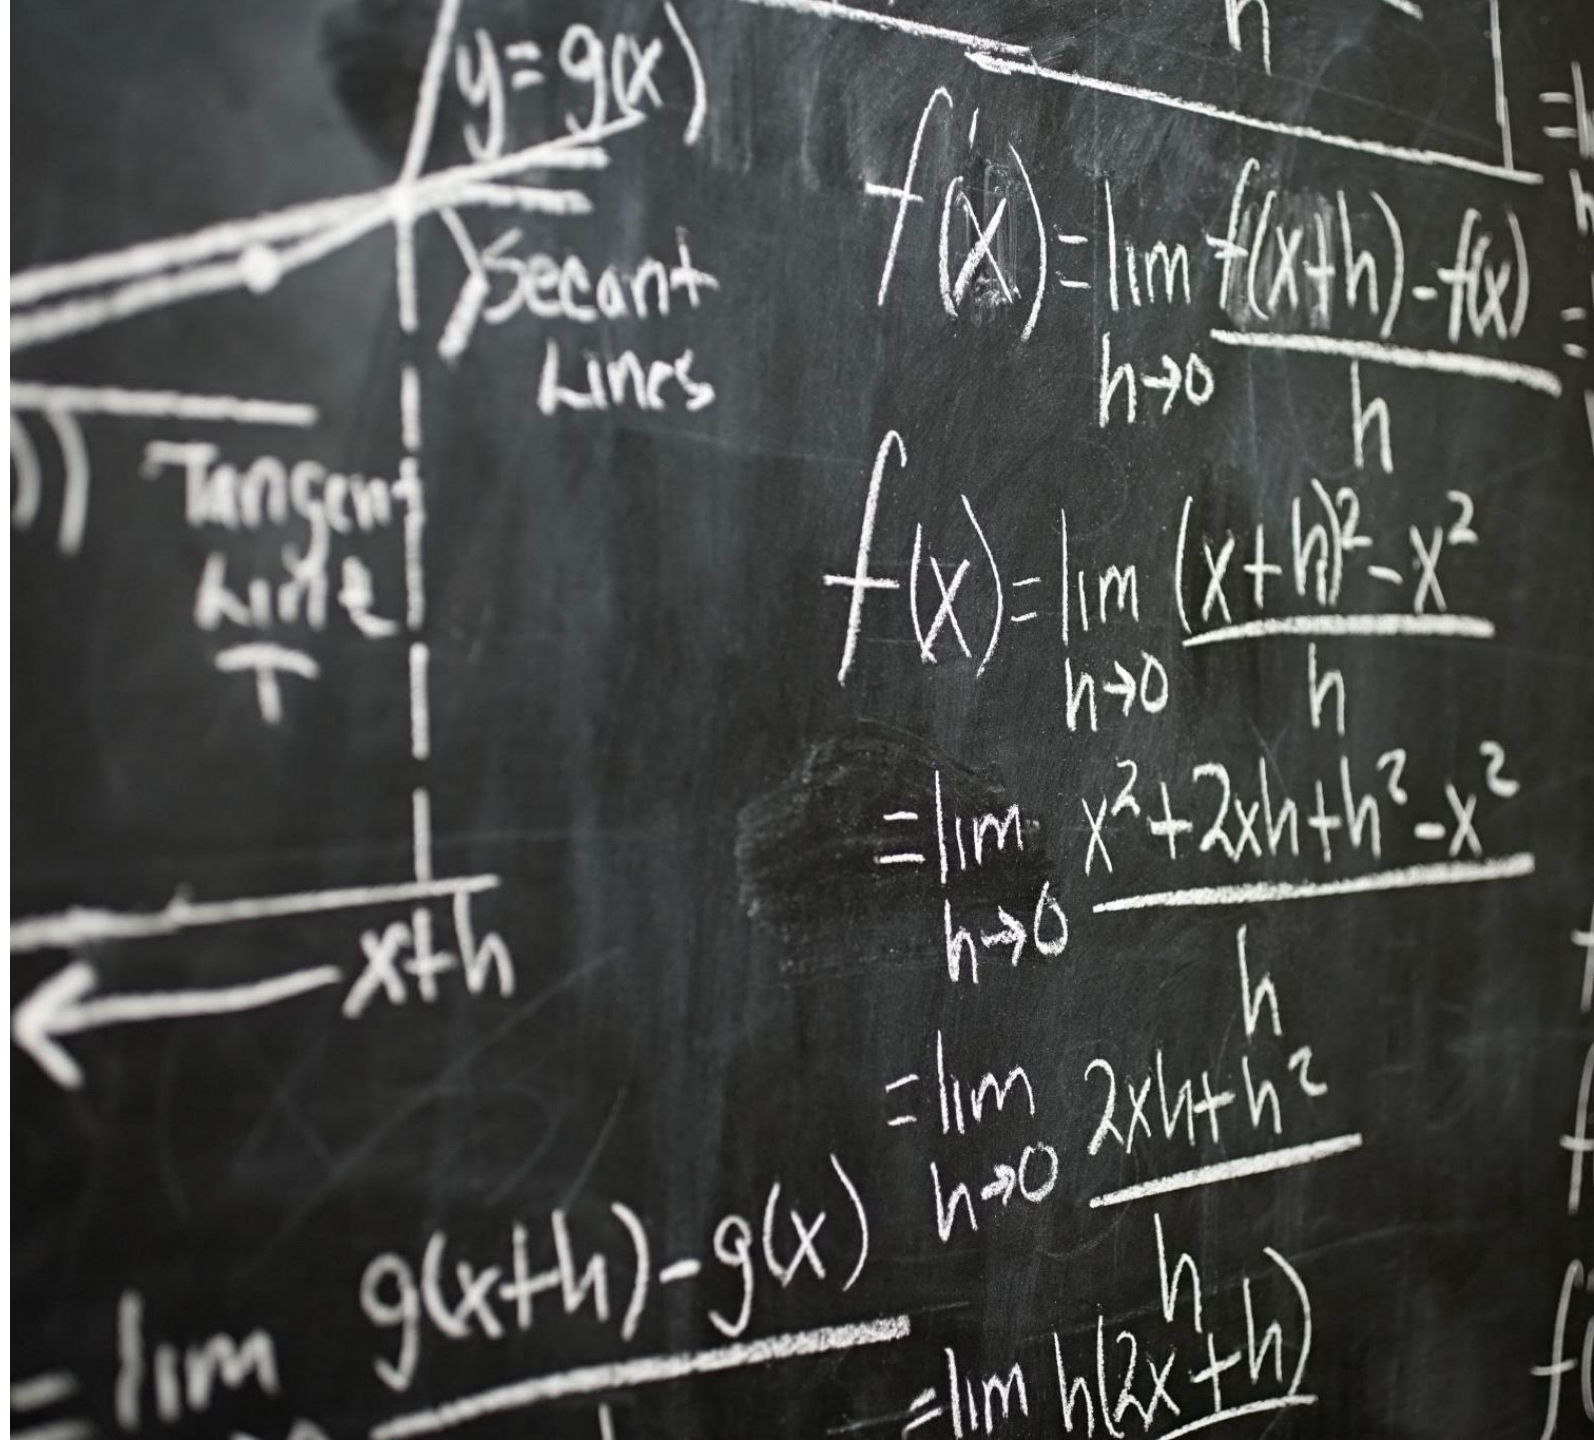 y=g(x)
Secant
Lines
Tangent
Line
T
x+h
= lim g(x+h)-g(x)
h
f'(x)=lim f(x+h)-f(x)
h→0 h
f(x)=lim (x+h)²-x²
h→0 h
=lim x²+2xh+h²-x²
h→0 h
=lim 2xh+h²
h→0 h
=lim h(2x+h)